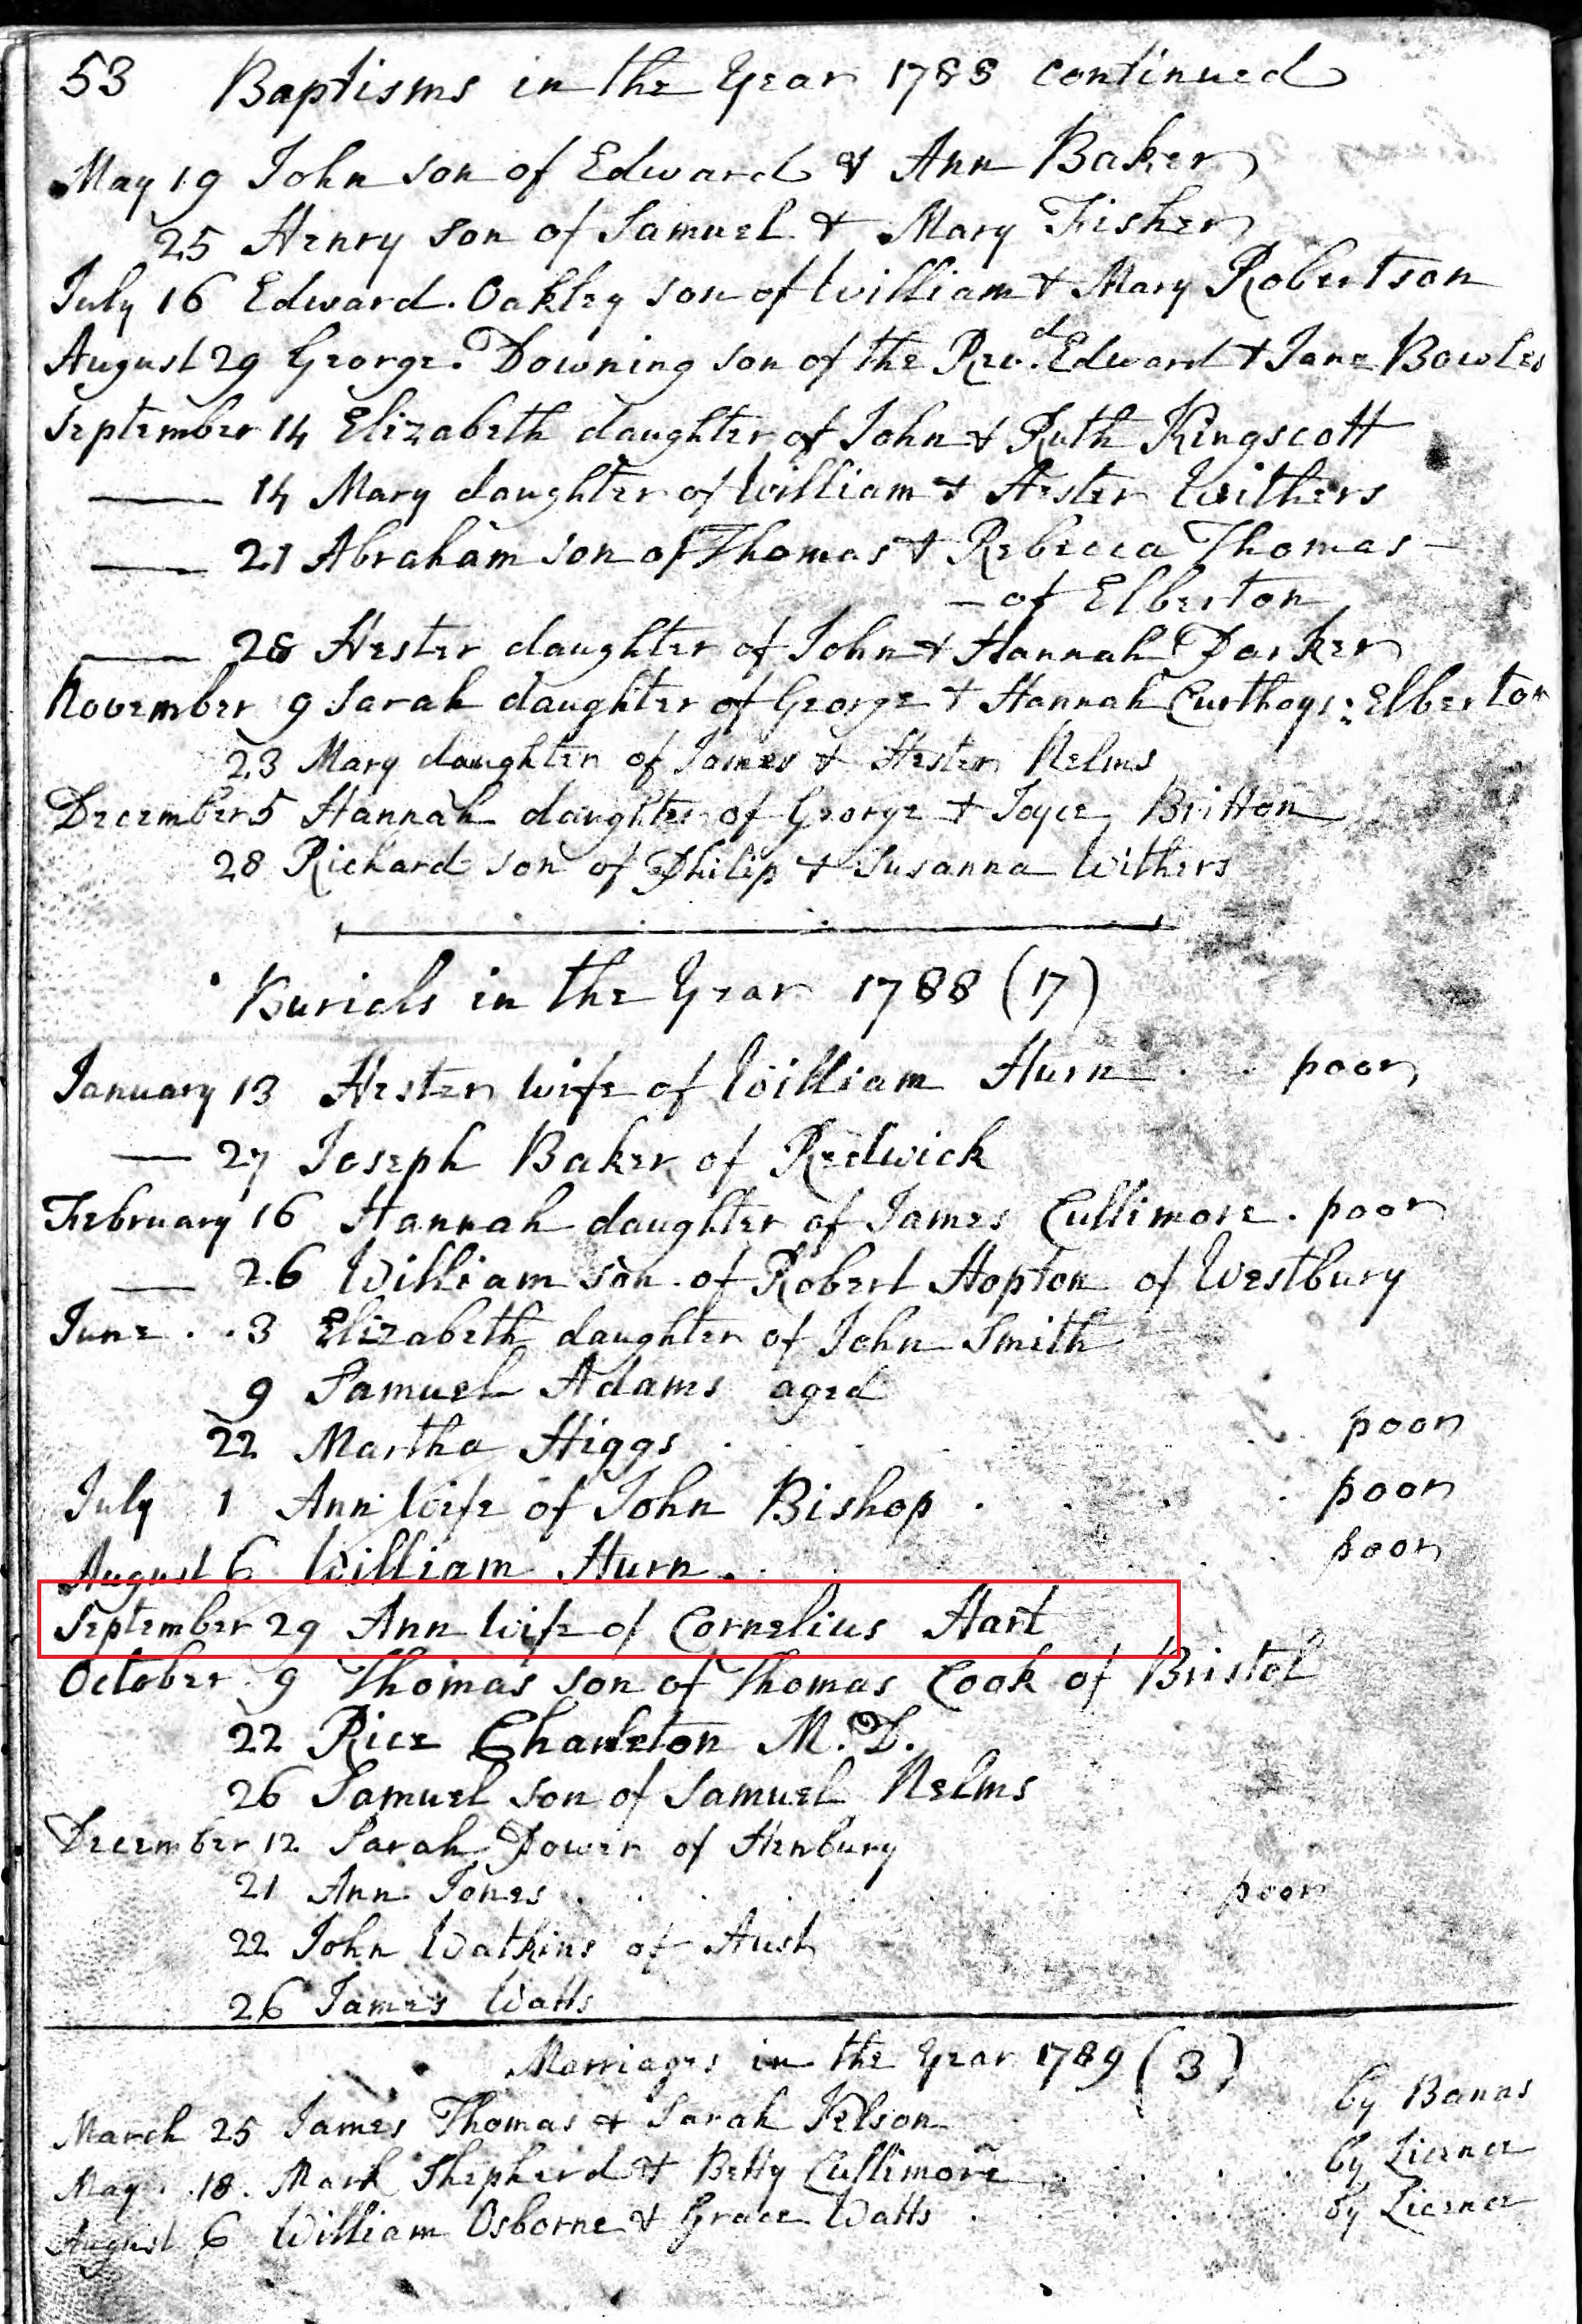 53 Baptisms in the Year 1788 continued
May 19 John son of Edward & Ann Baker
25 Henry son of Samuel & Mary Fisher
July 16 Edward Oakley son of William & Mary Robertson
August 29 George Downing son of the Revd. Edward & Jane Bowles
September 14 Elizabeth daughter of John & Ruth Kingscott
— 14 Mary daughter of William & Hester Withers
— 21 Abraham son of Thomas & Rebecca Thomas —
— of Elberton
— 28 Hester daughter of John & Hannah Parker
November 9 Sarah daughter of George & Hannah Curthoys: Elberton
23 Mary daughter of James & Hester Nelms
December 5 Hannah daughter of George & Joyce Britton
28 Richard son of Philip & Susanna Withers
Burials in the Year 1788 (17)
January 13 Hester wife of William Hurn . . poor
— 27 Joseph Baker of Redwick
February 16 Hannah daughter of James Cullimore . poor
— 26 William son of Robert Hopton of Westbury
June . . 3 Elizabeth daughter of John Smith
9 Samuel Adams aged
22 Martha Higgs . . . . poor
July 1 Ann Wife of John Bishop . . . . poor
August 6 William Hurn . . . . poor
September 29 Ann Wife of Cornelius Hart
October 9 Thomas son of Thomas Cook of Bristol
22 Rice Charleton M.D.
26 Samuel son of Samuel Nelms
December 12 Sarah Power of Henbury
21 Ann Jones . . . . poor
22 John Watkins of Aust
26 James Watts
Marriages in the Year 1789 (3)
March 25 James Thomas & Sarah by Banns
May . . 18 . Mark Shepherd & Betty Cullimore . . . . by Licence
August 6 William Osborne & Grace Watts . . . . by Licence